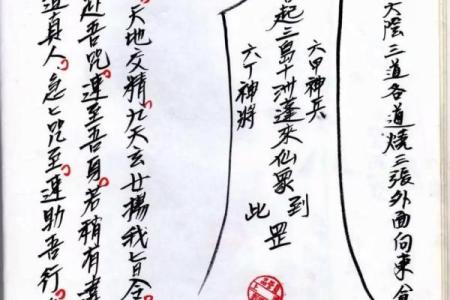 大陰三道各道燒三張外面向東
六甲神兵
起三島十洲蓬來仙眾到此罡
六丁神將
天地交精九天玄女揚我旨令
赴吾咒速至吾身若稍有違
道真人急匕咒至速助吾行